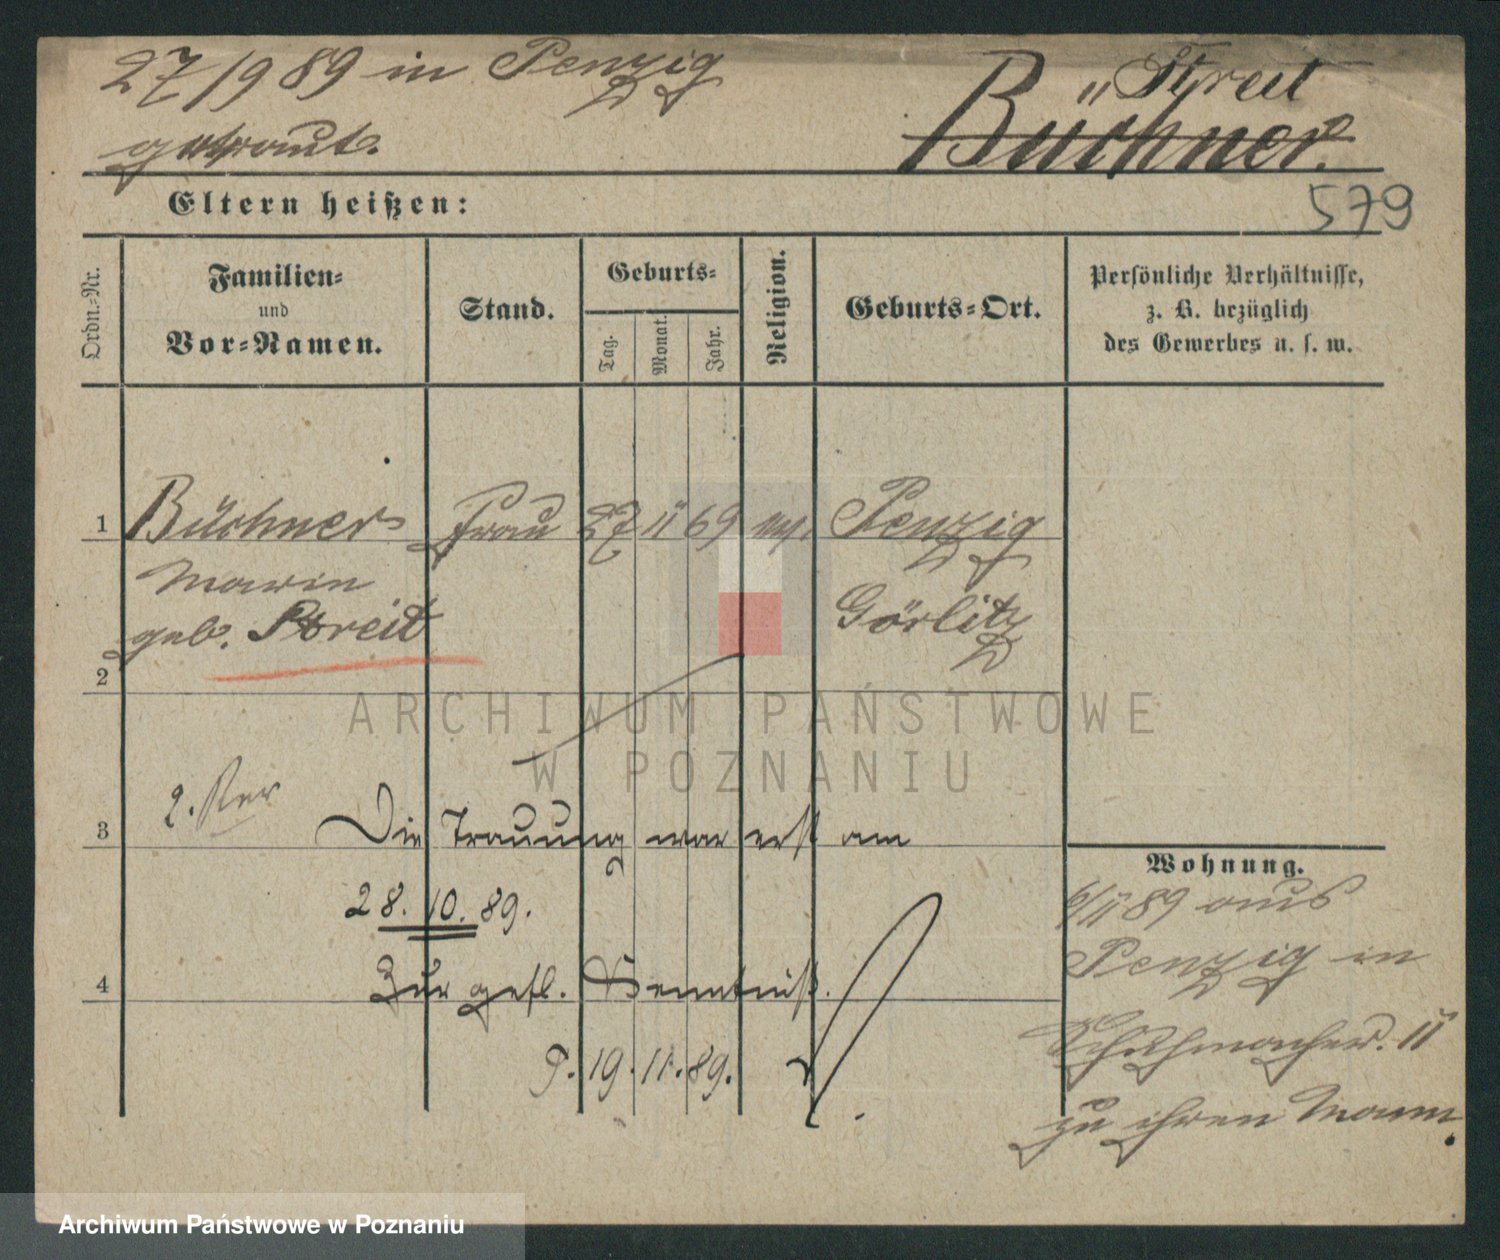 27/9 89 in Penzig
getraut.
Streit
Büchner.
Eltern heißen:
579
Ordn.-Nr.
Familien-
und
Vor-Namen.
Stand.
Geburts-
Tag.
Monat.
Jahr.
Religion.
Geburts-Ort.
Persönliche Verhältnisse,
z. B. bezüglich
des Gewerbes u. s. w.
1 Büchner Frau 27 11 69 Penzig
Marie
geb. Streit
Görlitz
2
ARCHIWUM PAŃSTWOWE
W POZNANIU
2.
3 Die Trauung war erst am
28. 10. 89.
4 Zur gefl. Kenntniß.
P. 19. 11. 89.
Wohnung.
6/11 89 aus
Penzig in
Schuhmacher. 11
zu ihren Mann.
Archiwum Państwowe w Poznaniu